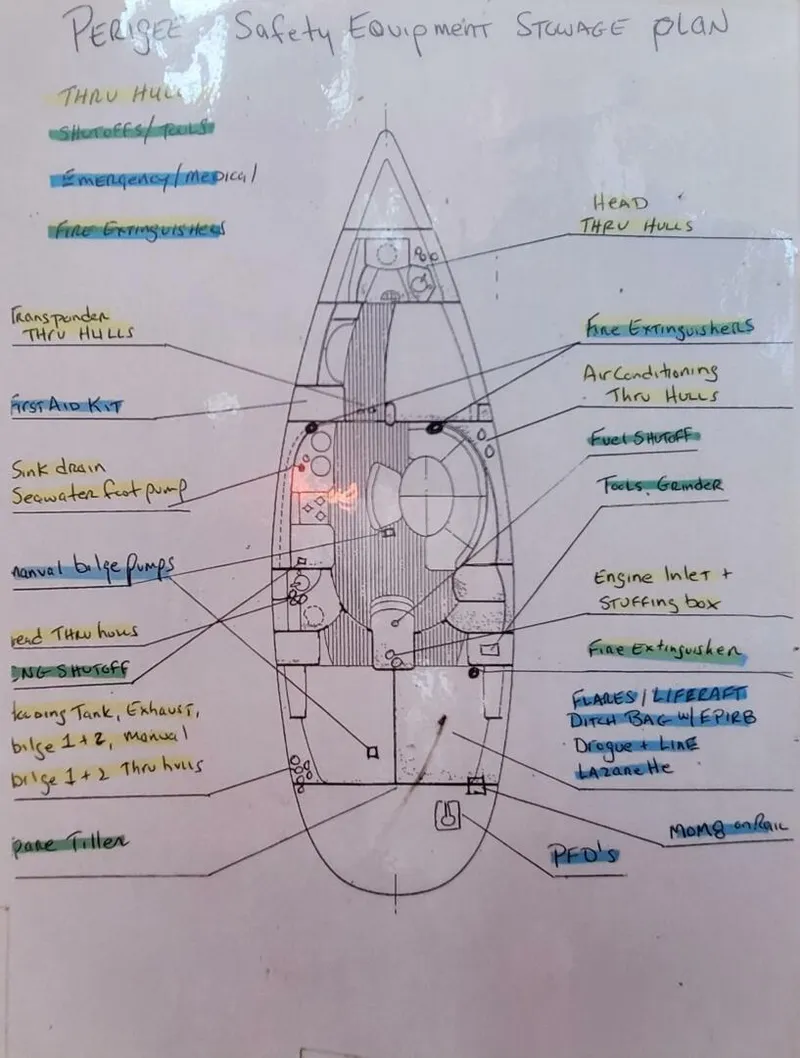 PERIGEE Safety EQUIPMENT STOWAGE plan
THRU HULL
SHUTOFFS/TOOLS
EMERGENCY/MEDICAL
FIRE EXTINGUISHERS
HEAD
THRU HULLS
Transponder
THRU HULLS
Fire EXTINGUISHERS
Air Conditioning
THRU HULLS
FIRST AID KIT
Fuel SHUTOFF
Sink drain
Seawater foot pump
Tools, Grinder
manual bilge pumps
Engine INLET +
STUFFING box
Head THRU hulls
Fire Extinguisher
NG SHUTOFF
FLARES/LIFERAFT
DITCH BAG W/EPIRB
Drogue + LINE
LAZARETTE
Tank, Exhaust,
bilge 1+2, manual
bilge 1+2 Thru hulls
MOM8 on Rail
pare Tiller
PFD'S